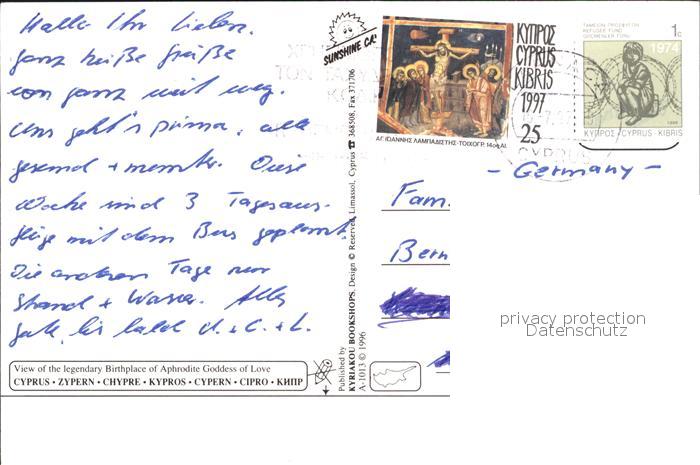 Hallo Ihr Lieben.
ganz heiße Grüße
von ganz weit weg.
Uns geht's prima, alle
gesund + munter. Diese
Woche sind 3 Tagesaus-
flüge mit dem Bus geplant.
Die anderen Tage nur
Strand + Wasser. Alles
Gute, bis bald
View of the legendary Birthplace of Aphrodite Goddess of Love
CYPRUS • ZYPERN • CHYPRE • KYPROS • CYPERN • CIPRO • КИПР
SUNSHINE CA
Published by
KYRIAKOU BOOKSHOPS. Design © Reserved, Limassol, Cyprus ☎ 368508, Fax 371706
A-1013 © 1996
ΚΥΠΡΟΣ
CYPRUS
KIBRIS
1997
25
ΑΓ. ΙΩΑΝΝΗΣ ΛΑΜΠΑΔΙΣΤΗΣ-ΤΟΙΧΟΓΡ. 14ος ΑΙ.
CYPRUS
ΤΑΜΕΙΟΝ ΠΡΟΣΦΥΓΩΝ
REFUGEE FUND
GÖÇMENLER FONU
1c
1974
ΚΥΠΡΟΣ • CYPRUS • KIBRIS
- Germany -
Fam.
Bern
privacy protection
Datenschutz